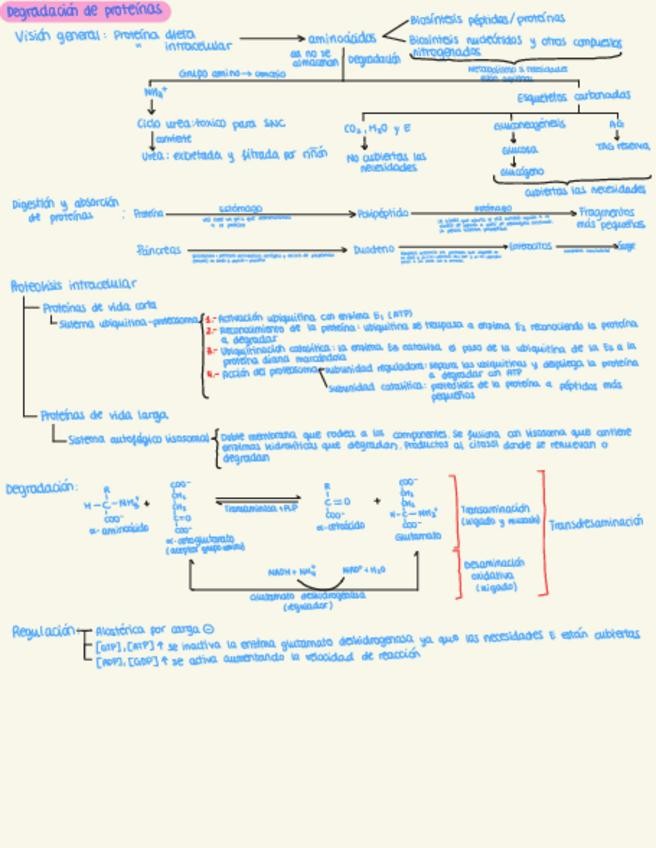 Degradación de proteínas
Visión general: Proteína dieta
" intracelular
aminoácidos
Biosíntesis péptidos/proteínas
Biosíntesis nucleótidos y otros compuestos
nitrogenados
aa no se
almacenan
Degradación
Grupo amino → amonio
Metabolismo si necesidades
NH₄⁺
Esqueletos carbonados
Ciclo urea: toxico para SNC
convierte
Urea: excretada y filtrada por riñón
CO₂, H₂O y E
No cubiertas las
necesidades
Gluconeogénesis
Glucosa
Glucógeno
AG
TAG reserva
cubiertas las necesidades
Digestión y absorción
de proteínas :
Proteína
Estómago
Polipéptido
Fragmentos
más pequeños
Páncreas
Duodeno
Enterocitos
Sangre
Proteólisis intracelular
Proteínas de vida corta
Sistema ubiquitina-proteosoma
1.- Activación ubiquitina con enzima E₁ (ATP)
2.- Reconocimiento de la proteína: ubiquitina se traspasa a enzima E₂ reconociendo la proteína
a degradar
3.- Ubiquitinación catalítica: la enzima E₃ cataliza el paso de la ubiquitina de la E₂ a la
proteína diana marcándola
4.- Acción del proteosoma
subunidad reguladora: separa las ubiquitinas y despliega la proteína
a degradar con ATP
Subunidad catalítica: proteólisis de la proteína a péptidos más
pequeños
Proteínas de vida larga
Sistema autofágico lisosomal
Doble membrana que rodea a los componentes. Se fusiona con lisosoma que contiene
enzimas hidrolíticas que degradan. Productos al citosol donde se renuevan o
degradan
Degradación:
R
H-C-NH₃⁺
COO⁻
α-aminoácido
+
COO⁻
CH₂
CH₂
C=O
COO⁻
α-cetoglutarato
(aceptor grupo amino)
Transaminasa + PLP
R
C=O
COO⁻
α-cetoácido
+
COO⁻
CH₂
CH₂
H-C-NH₃⁺
COO⁻
Glutamato
Transaminación
(hígado y músculo)
Transdesaminación
Desaminación
oxidativa
(hígado)
NADH + NH₄⁺
NAD⁺ + H₂O
Glutamato deshidrogenasa
(regulador)
Regulación
Alostérica por carga ⊖
[GTP], [ATP] ↑ se inactiva la enzima glutamato deshidrogenasa ya que las necesidades E están cubiertas
[ADP], [GDP] ↑ se activa aumentando la velocidad de reacción